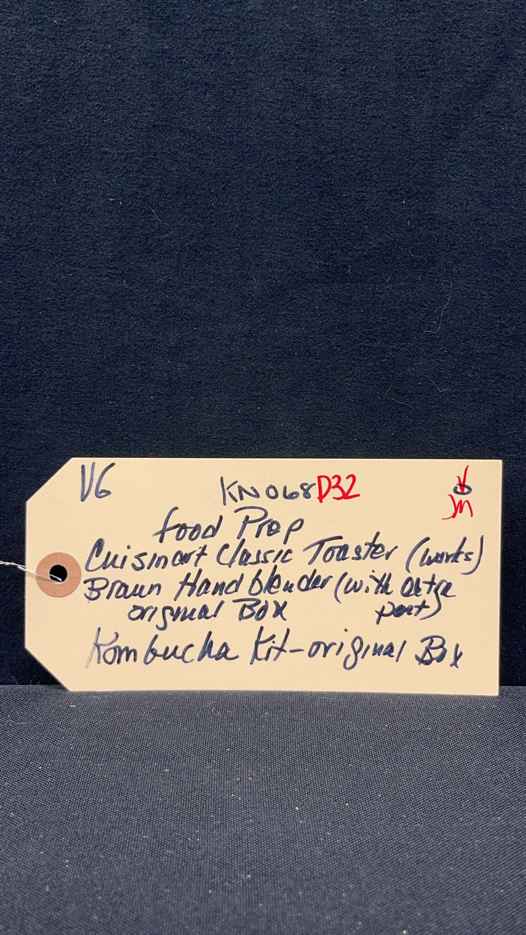 V6 KN068 D32
Food Prep
Cuisinart Classic Toaster (works)
Braun Hand blender (with extra
original Box part)
Kombucha Kit-original Box